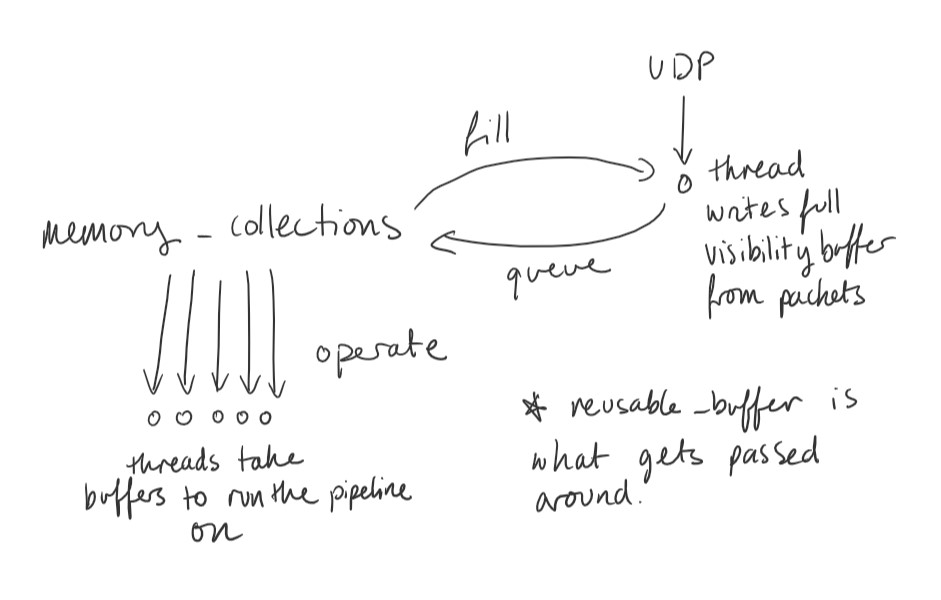 UDP
fill
thread
writes full
visibility buffer
from packets
memory_collections
queue
operate
threads take
buffers to run the pipeline
on
* reusable_buffer is
what gets passed
around.